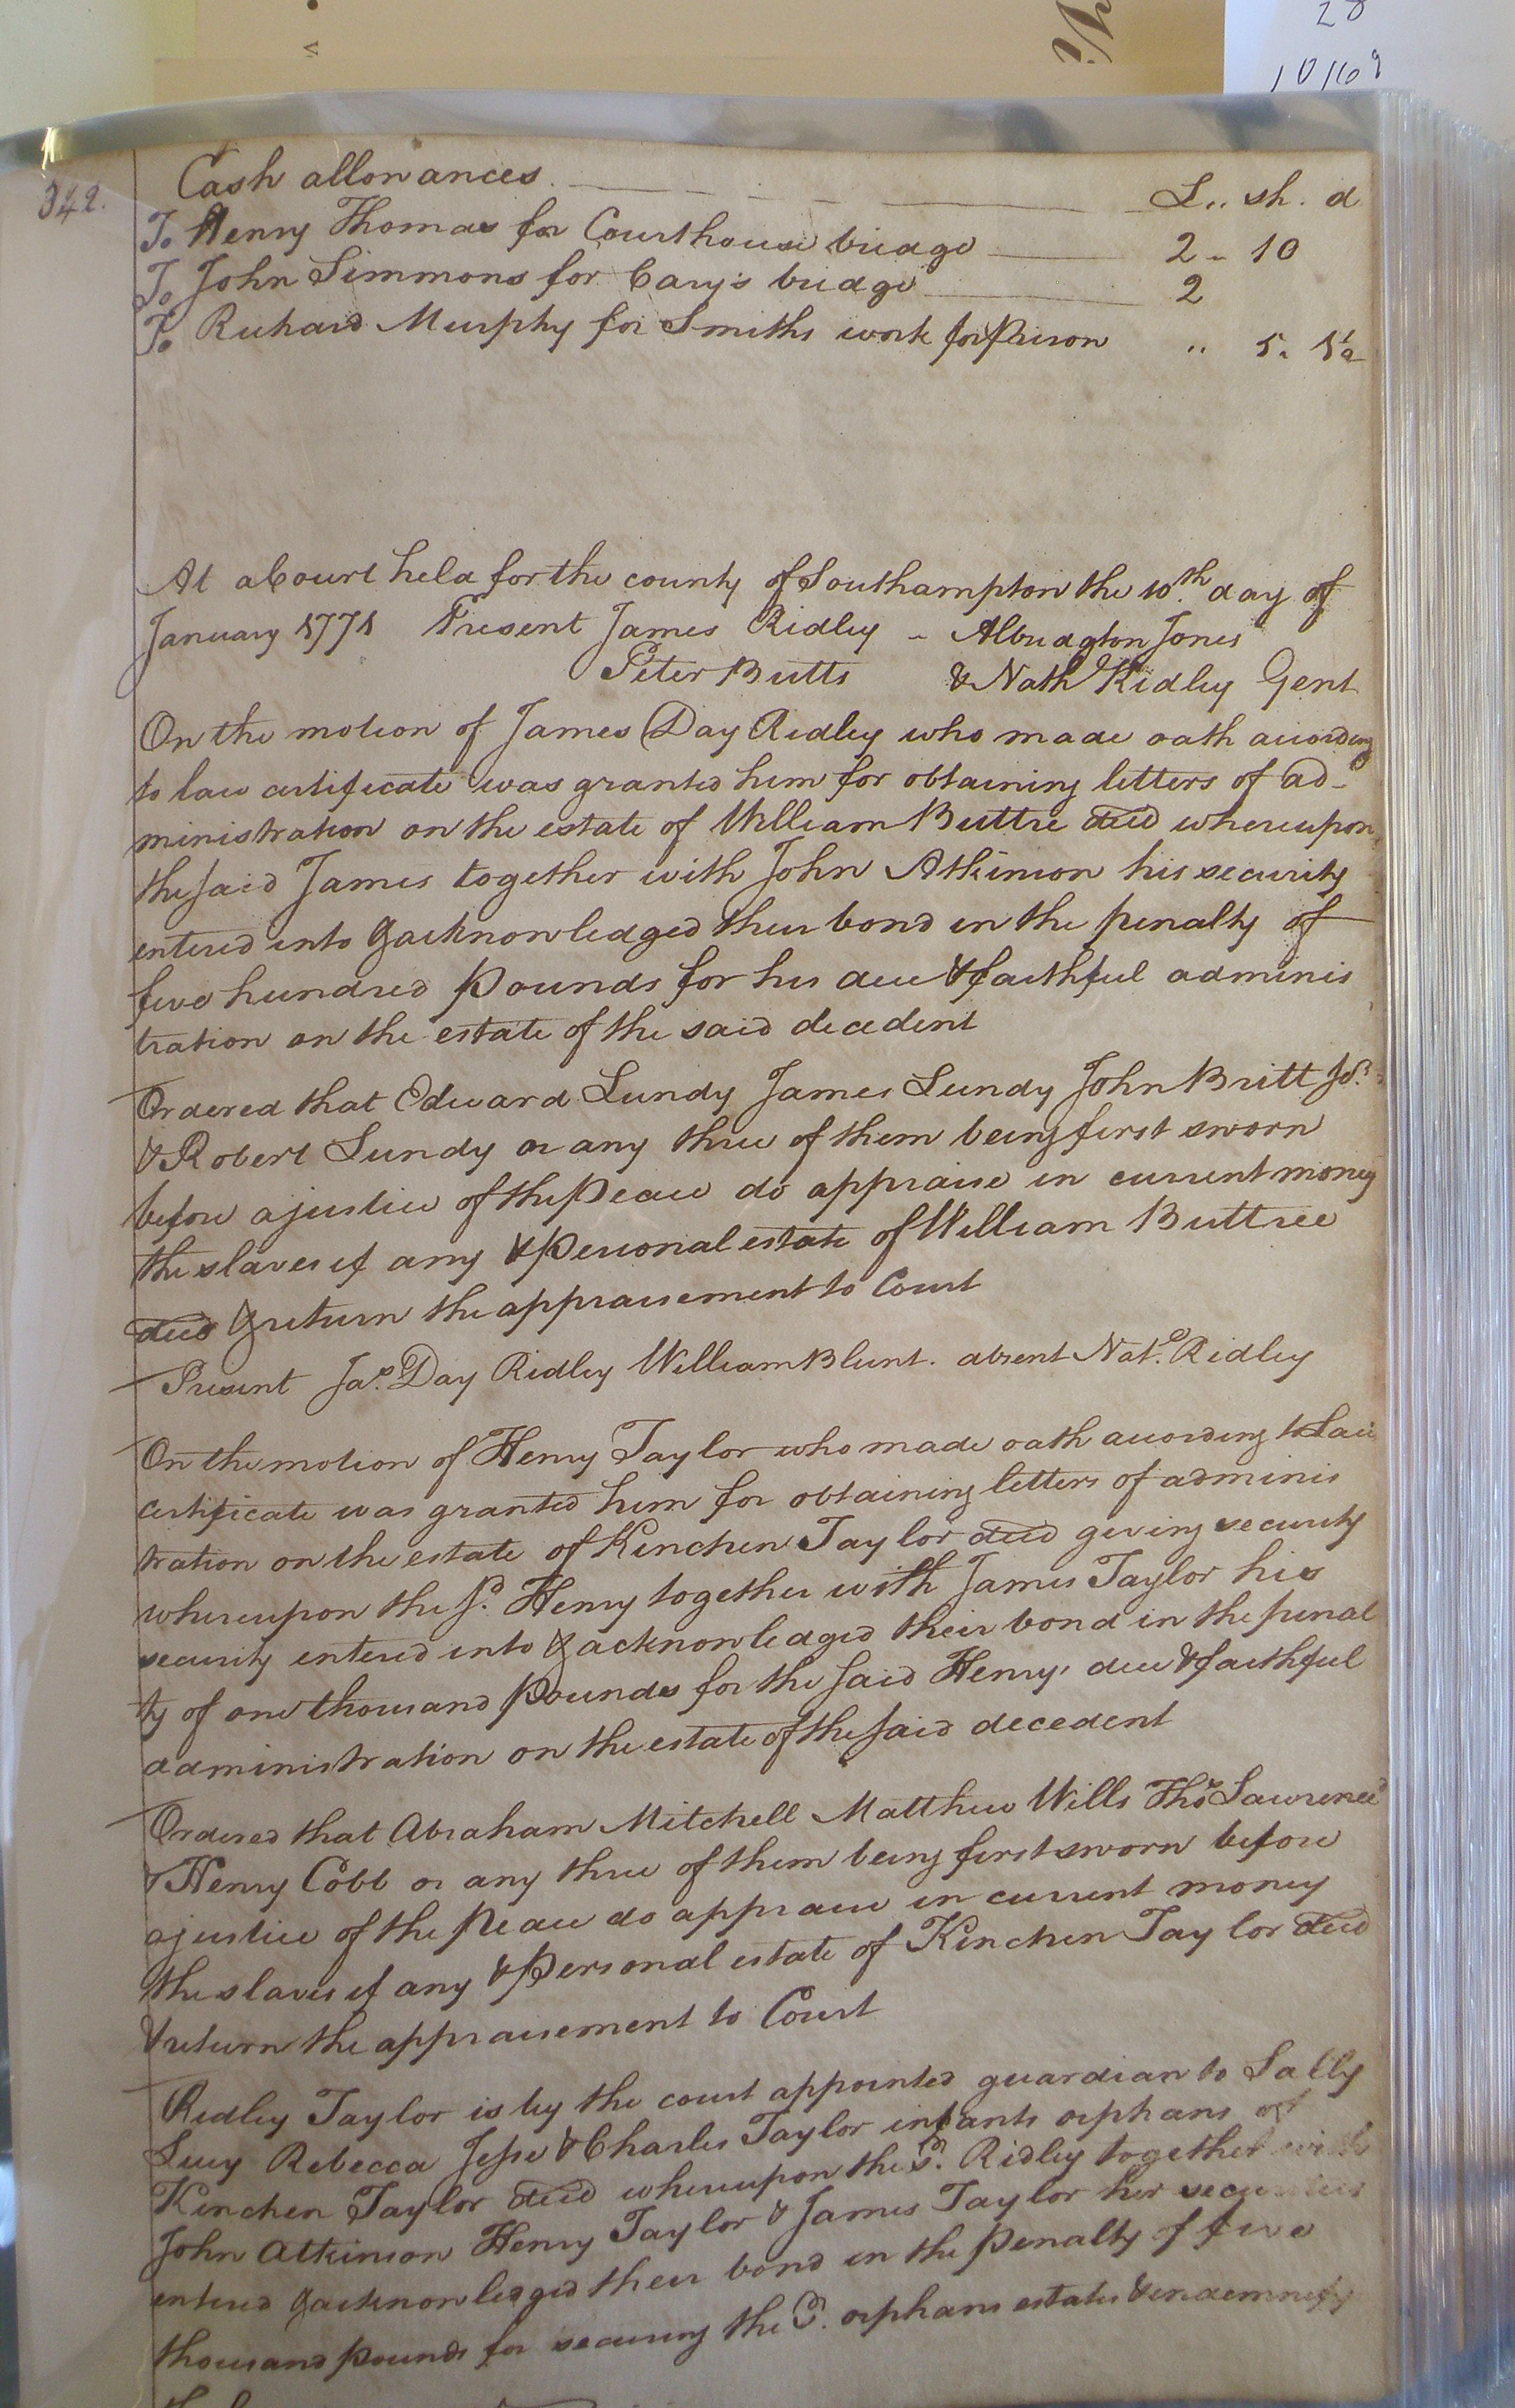 342.
Cash allowances. L.. sh. d
To Henry Thomas for Courthouse bridge 2 - 10
To John Simmons for Cary's bridge 2
To Richard Murphy for Smiths work for Prison .. 5. 5½
At a Court held for the county of Southampton the 10th day of
January 1771 Present James Ridley - Albridgton Jones
Peter Butts & Nath Ridley Gent
On the motion of James Day Ridley who made oath according
to law certificate was granted him for obtaining letters of ad-
ministration on the estate of William Buttre decd whereupon
the said James together with John Atkinson his security
entered into & acknowledged their bond in the penalty of
five hundred pounds for his due & faithful adminis
tration on the estate of the said decedent
Ordered that Edward Lundy James Lundy John Britt Jr.
& Robert Lundy or any three of them being first sworn
before a justice of the Peace do appraise in current money
the slaves if any & personal estate of William Buttree
decd & return the appraisement to Court
Present Jas. Day Ridley William Blunt. absent Natl. Ridley
On the motion of Henry Taylor who made oath according to Law
certificate was granted him for obtaining letters of adminis
tration on the estate of Kinchen Taylor decd giving security
whereupon the sd. Henry together with James Taylor his
security entered into & acknowledged their bond in the penal
ty of one thousand pounds for the said Henry's due & faithful
administration on the estate of the said decedent
Ordered that Abraham Mitchell Matthew Wills Thos Lawrence
& Henry Cobb or any three of them being first sworn before
a justice of the Peace do appraise in current money
the slaves if any & personal estate of Kinchen Taylor decd
& return the appraisement to Court
Ridley Taylor is by the court appointed guardian to Sally
Lucy Rebecca Jesse & Charles Taylor infants orphans of
Kinchen Taylor decd whereupon the sd. Ridley together with
John Atkinson Henry Taylor & James Taylor her securities
entered & acknowledged their bond in the penalty of five
thousand pounds for securing the sd. orphans estates & indemnify